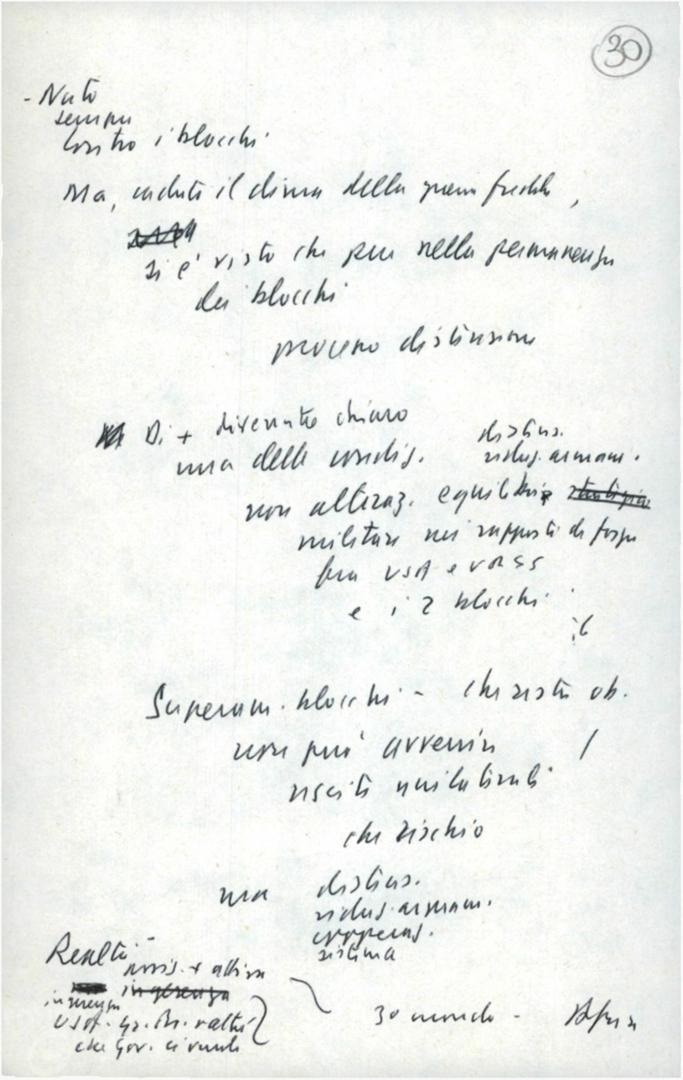 30
- Nato
sempre
contro i blocchi
Ma, caduto il clima della guerra fredda,
si è visto che pur nella permanenza
dei blocchi
processo distensione
Di + diventato chiaro
una delle condiz. distens.
riduz. armam.
non alteraz. equilibrio
militare nei rapporti di forza
fra USA e URSS
e i 2 blocchi
il
Superam. blocchi - che resta ob.
non può avvenire
uscite unilaterali
che rischio
ma distens.
riduz. armam.
cooperaz.
sistema
Realtà
+ attiva
ingerenza
USA. Gr. Br. e altri
che gov. ci vuole
3o mondo -